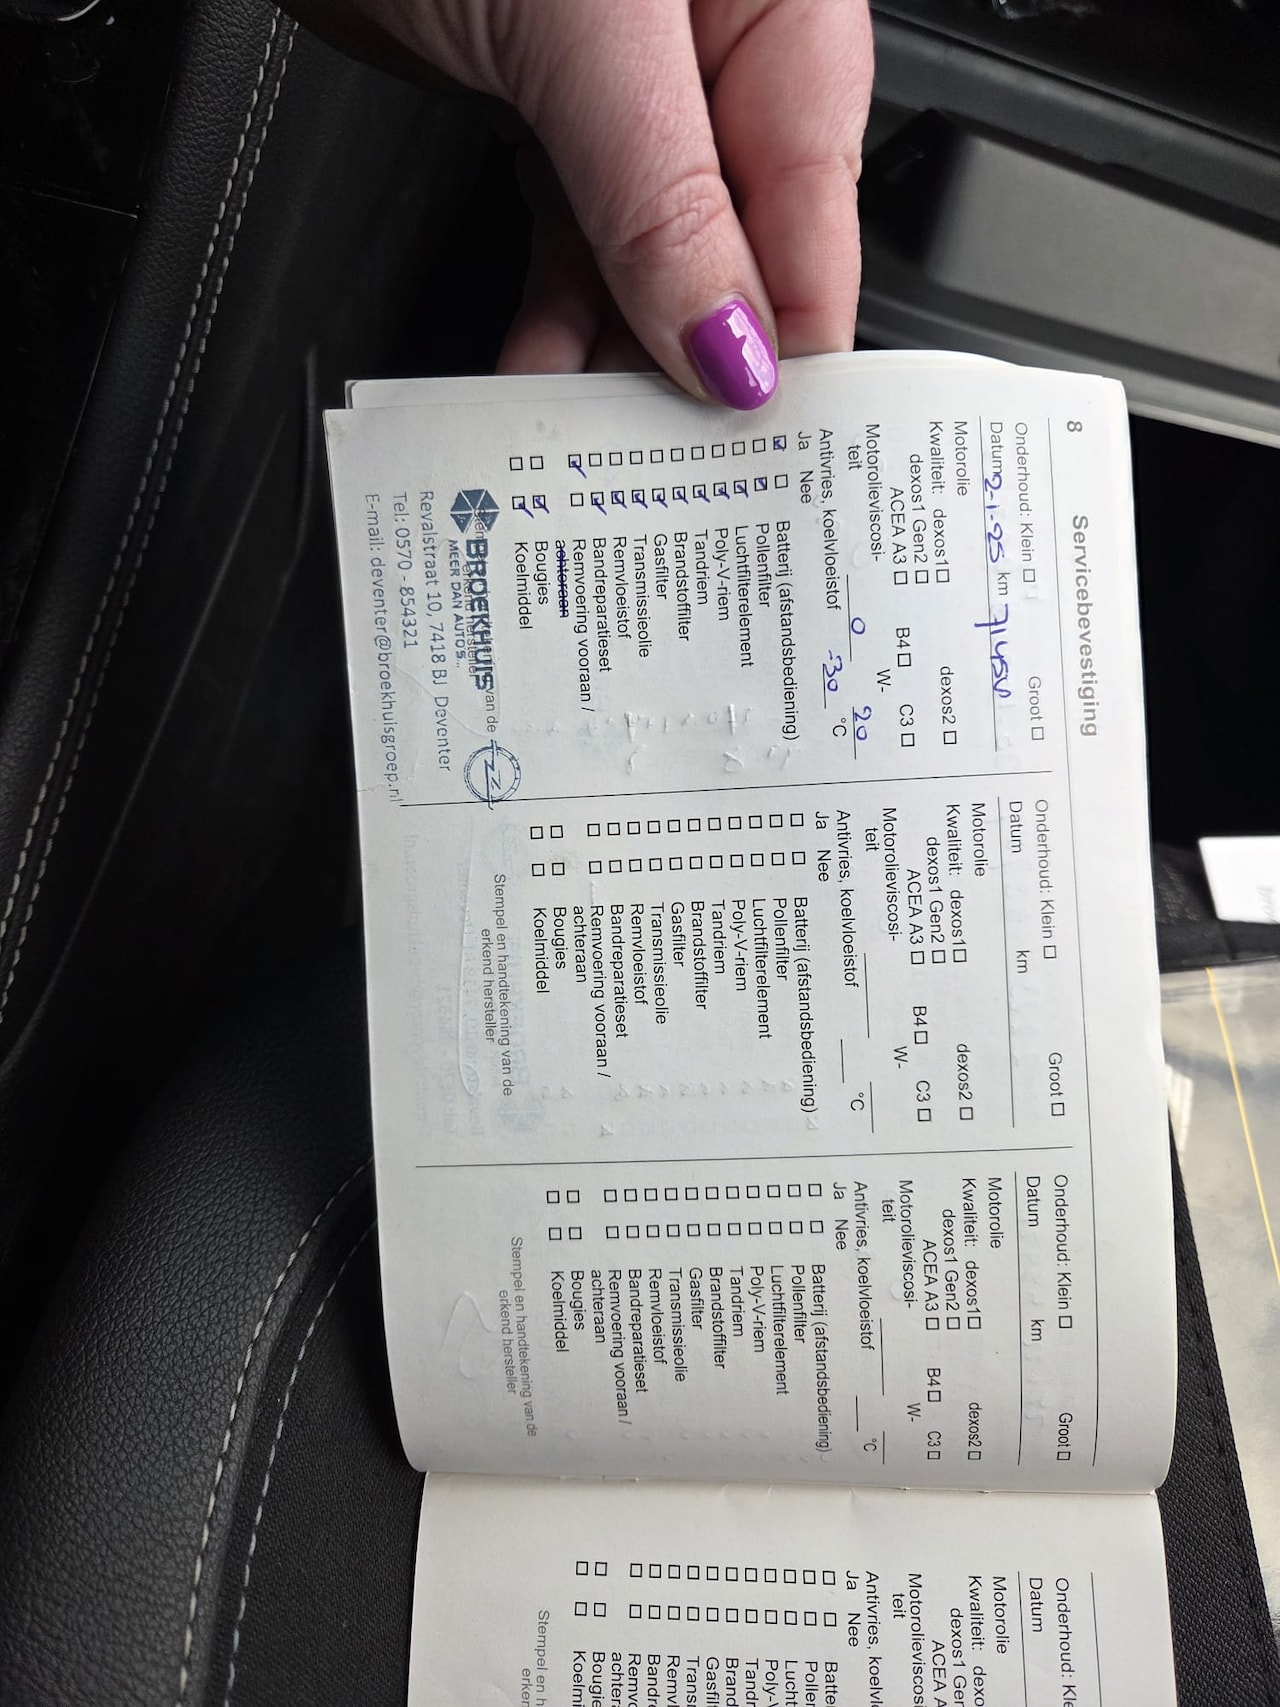 8
Servicebevestiging
Onderhoud: Klein ☐ Groot ☐
Datum 2-1-25 km
Motorolie
Kwaliteit: dexos1 ☐ dexos2 ☐
dexos1 Gen2 ☐
ACEA A3 ☐ B4 ☐ C3 ☐
Motorolieviscosi-
teit 0 W- 20
Antivries, koelvloeistof -30 °C
Ja Nee
☑ ☐ Batterij (afstandsbediening)
☐ ☑ Pollenfilter
☐ ☑ Luchtfilterelement
☐ ☑ Poly-V-riem
☐ ☑ Tandriem
☐ ☑ Brandstoffilter
☐ ☑ Gasfilter
☐ ☑ Transmissieolie
☐ ☑ Remvloeistof
☐ ☑ Bandreparatieset
☑ ☐ Remvoering vooraan /
achteraan
☐ ☑ Bougies
☐ ☑ Koelmiddel
van de
erkend hersteller
BROEKHUIS
MEER DAN AUTO'S...
Revalstraat 10, 7418 BJ Deventer
Tel: 0570 - 854321
E-mail: deventer@broekhuisgroep.nl
Onderhoud: Klein ☐ Groot ☐
Datum km
Motorolie
Kwaliteit: dexos1 ☐ dexos2 ☐
dexos1 Gen2 ☐
ACEA A3 ☐ B4 ☐ C3 ☐
Motorolieviscosi-
teit W-
Antivries, koelvloeistof °C
Ja Nee
☐ ☐ Batterij (afstandsbediening)
☐ ☐ Pollenfilter
☐ ☐ Luchtfilterelement
☐ ☐ Poly-V-riem
☐ ☐ Tandriem
☐ ☐ Brandstoffilter
☐ ☐ Gasfilter
☐ ☐ Transmissieolie
☐ ☐ Remvloeistof
☐ ☐ Bandreparatieset
☐ ☐ Remvoering vooraan /
achteraan
☐ ☐ Bougies
☐ ☐ Koelmiddel
Stempel en handtekening van de
erkend hersteller
Onderhoud: Klein ☐ Groot ☐
Datum km
Motorolie
Kwaliteit: dexos1 ☐ dexos2 ☐
dexos1 Gen2 ☐
ACEA A3 ☐ B4 ☐ C3 ☐
Motorolieviscosi-
teit W-
Antivries, koelvloeistof °C
Ja Nee
☐ ☐ Batterij (afstandsbediening)
☐ ☐ Pollenfilter
☐ ☐ Luchtfilterelement
☐ ☐ Poly-V-riem
☐ ☐ Tandriem
☐ ☐ Brandstoffilter
☐ ☐ Gasfilter
☐ ☐ Transmissieolie
☐ ☐ Remvloeistof
☐ ☐ Bandreparatieset
☐ ☐ Remvoering vooraan /
achteraan
☐ ☐ Bougies
☐ ☐ Koelmiddel
Stempel en handtekening van de
erkend hersteller
Onderhoud: Kle
Datum
Motorolie
Kwaliteit: dexo
dexos1 Gen
ACEA A
Motorolieviscosi
teit
Antivries, koelv
Ja Nee
☐ ☐ Batte
☐ ☐ Poller
☐ ☐ Lucht
☐ ☐ Poly-V
☐ ☐ Tandr
☐ ☐ Brand
☐ ☐ Gasfi
☐ ☐ Trans
☐ ☐ Remvl
☐ ☐ Bandr
☐ ☐ Remvo
achter
☐ ☐ Bougie
☐ ☐ Koelmi
Stempel en h
erken